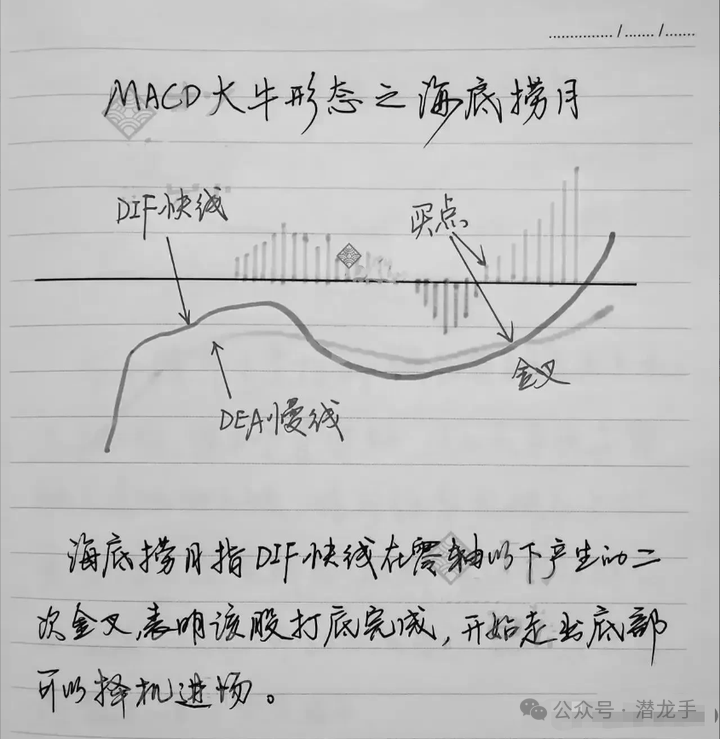 MACD大牛形态之海底捞月
DIF快线
买点
金叉
DEA慢线
海底捞月指DIF快线在零轴以下产生的二
次金叉,表明该股打底完成,开始走出底部
可以择机进场。
公众号·潜龙手